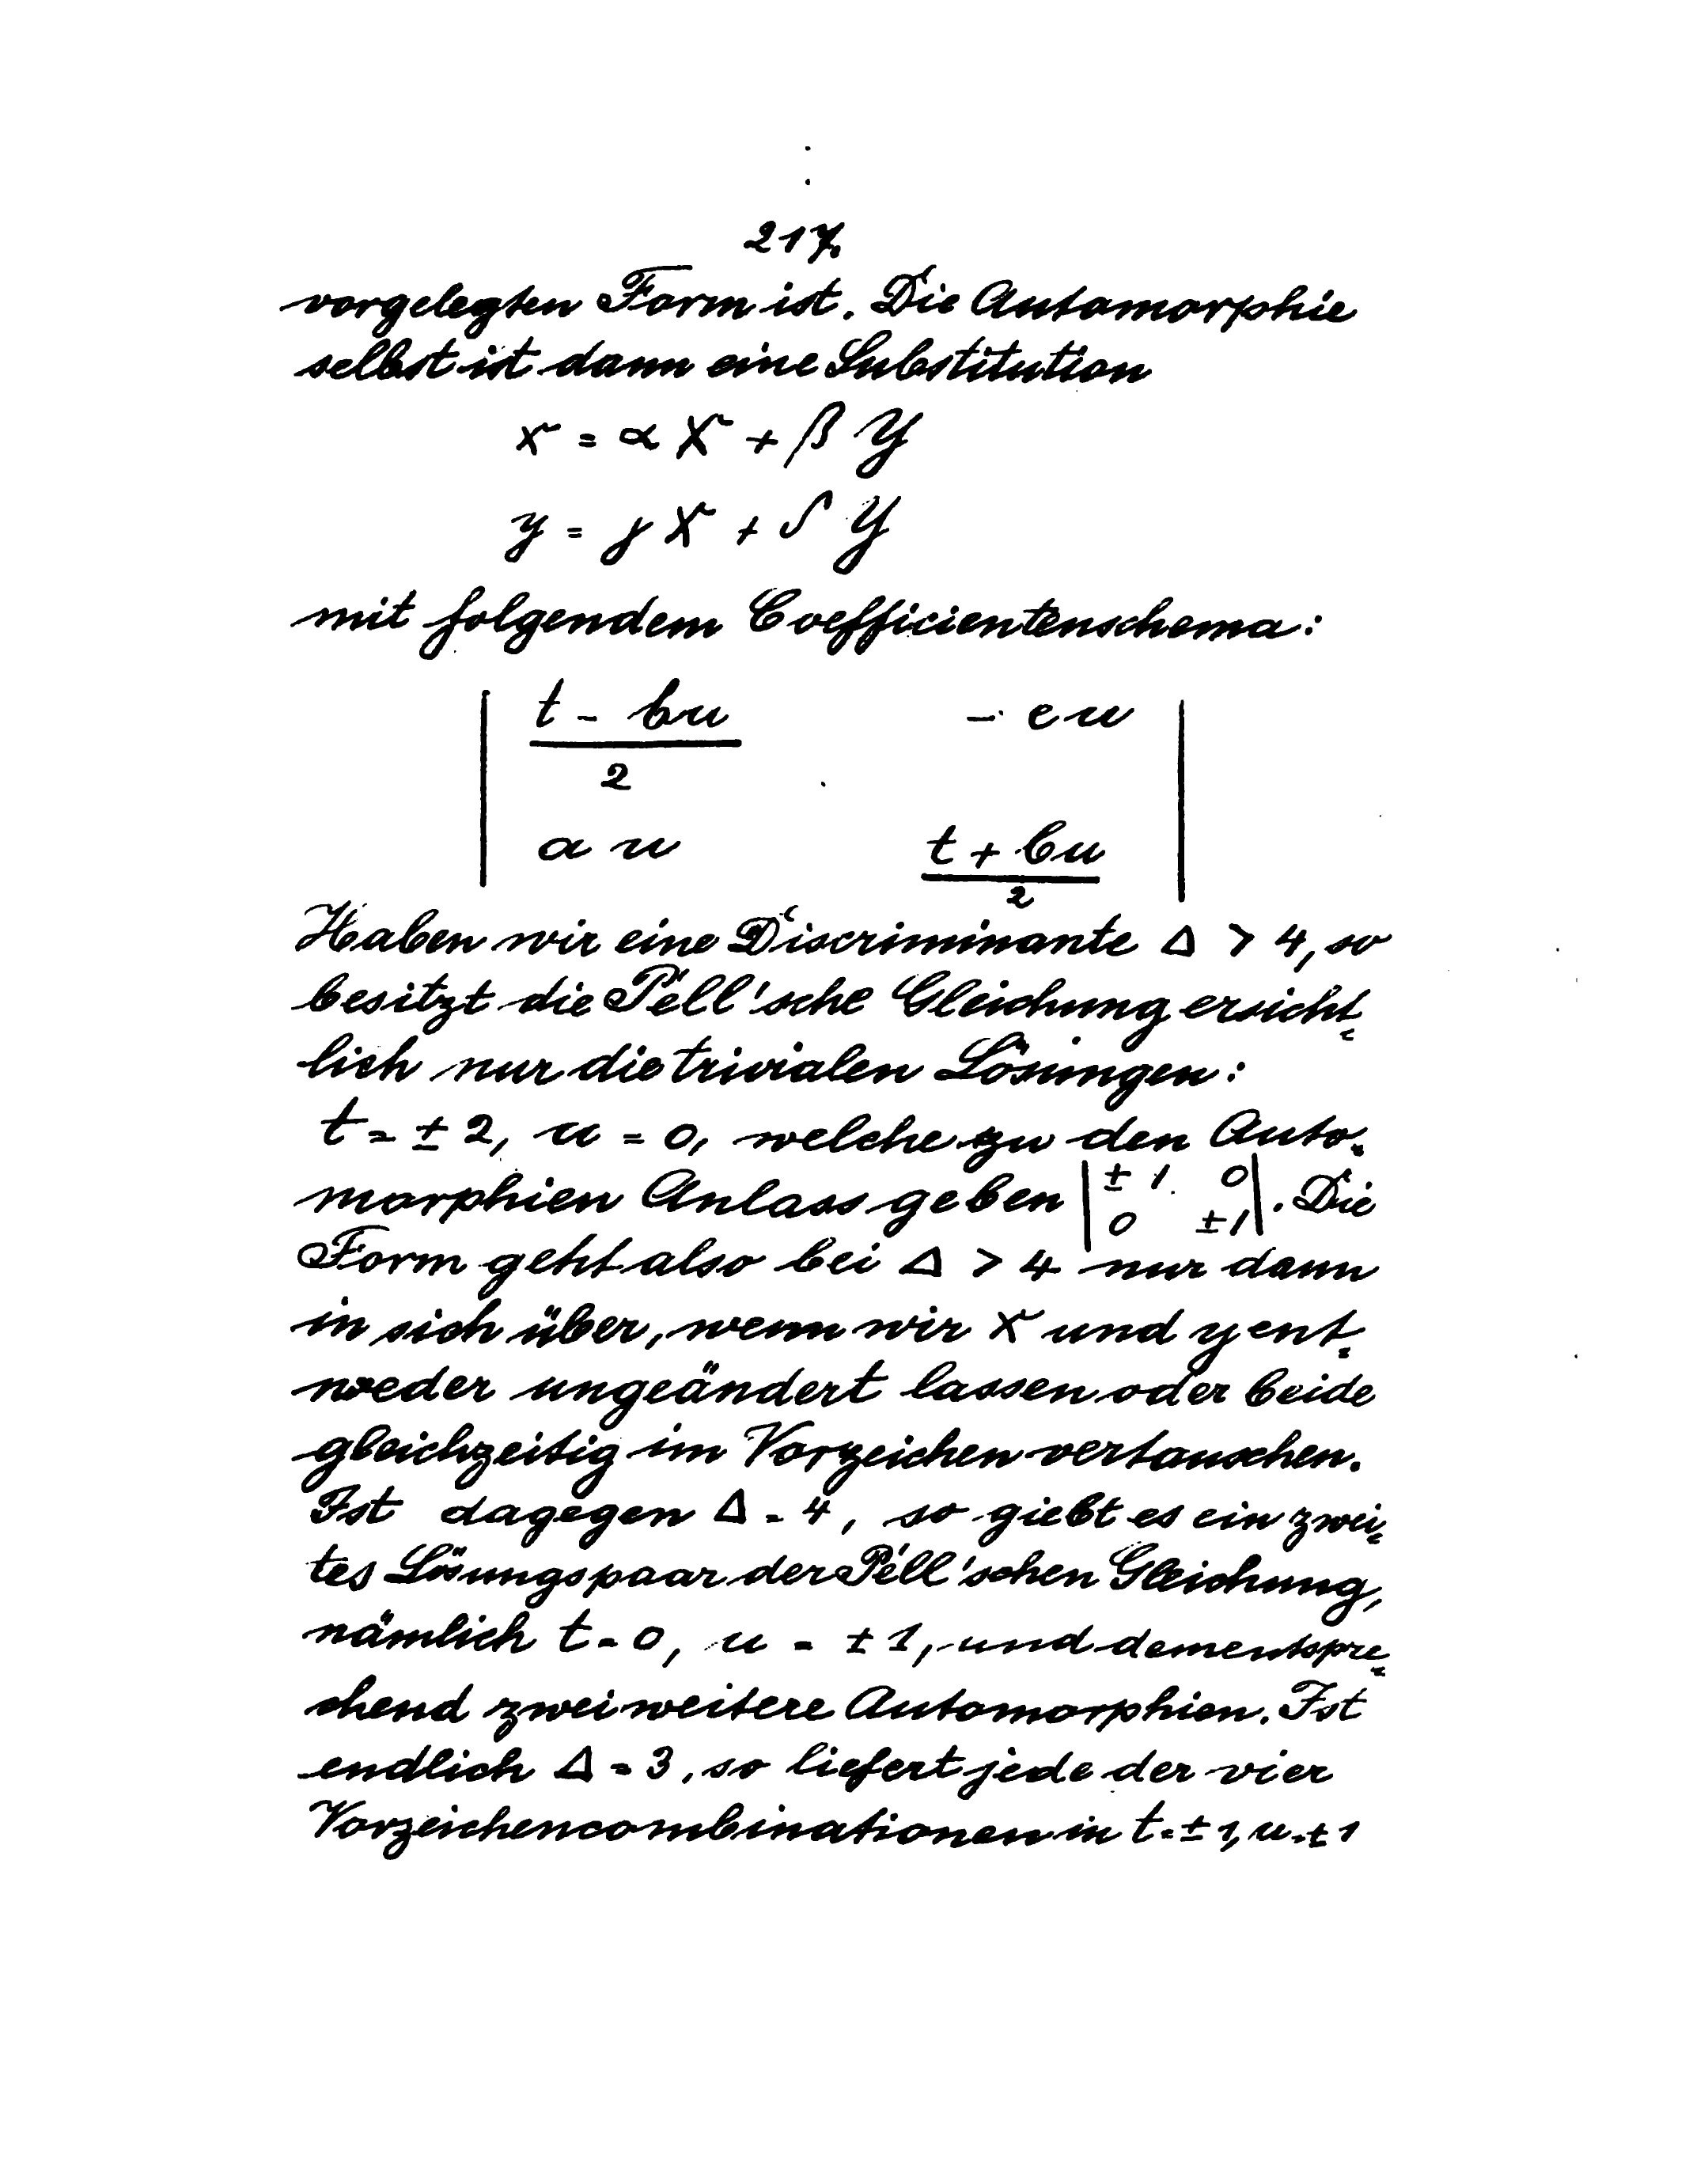 217.
vorgelegten Form ist. Die Automorphie
selbst ist dann eine Substitution
x = α X + β Y
y = γ X + δ Y
mit folgendem Coefficientenschema:
| (t - bu)/2    - cu |
| au    (t + bu)/2 |
Haben wir eine Discriminante Δ > 4, so
besitzt die Pell'sche Gleichung ersicht-
lich nur die trivialen Lösungen:
t = ± 2, u = 0, welche zu den Auto-
morphien Anlass geben | ± 1  0 ; 0  ± 1 |. Die
Form geht also bei Δ > 4 nur dann
in sich über, wenn wir x und y ent-
weder ungeändert lassen oder beide
gleichzeitig im Vorzeichen vertauschen.
Ist dagegen Δ = 4, so giebt es ein zwei-
tes Lösungspaar der Pell'schen Gleichung,
nämlich t = 0, u = ± 1, und dementspre-
chend zwei weitere Automorphien. Ist
endlich Δ = 3, so liefert jede der vier
Vorzeichencombinationen in t = ± 1, u = ± 1